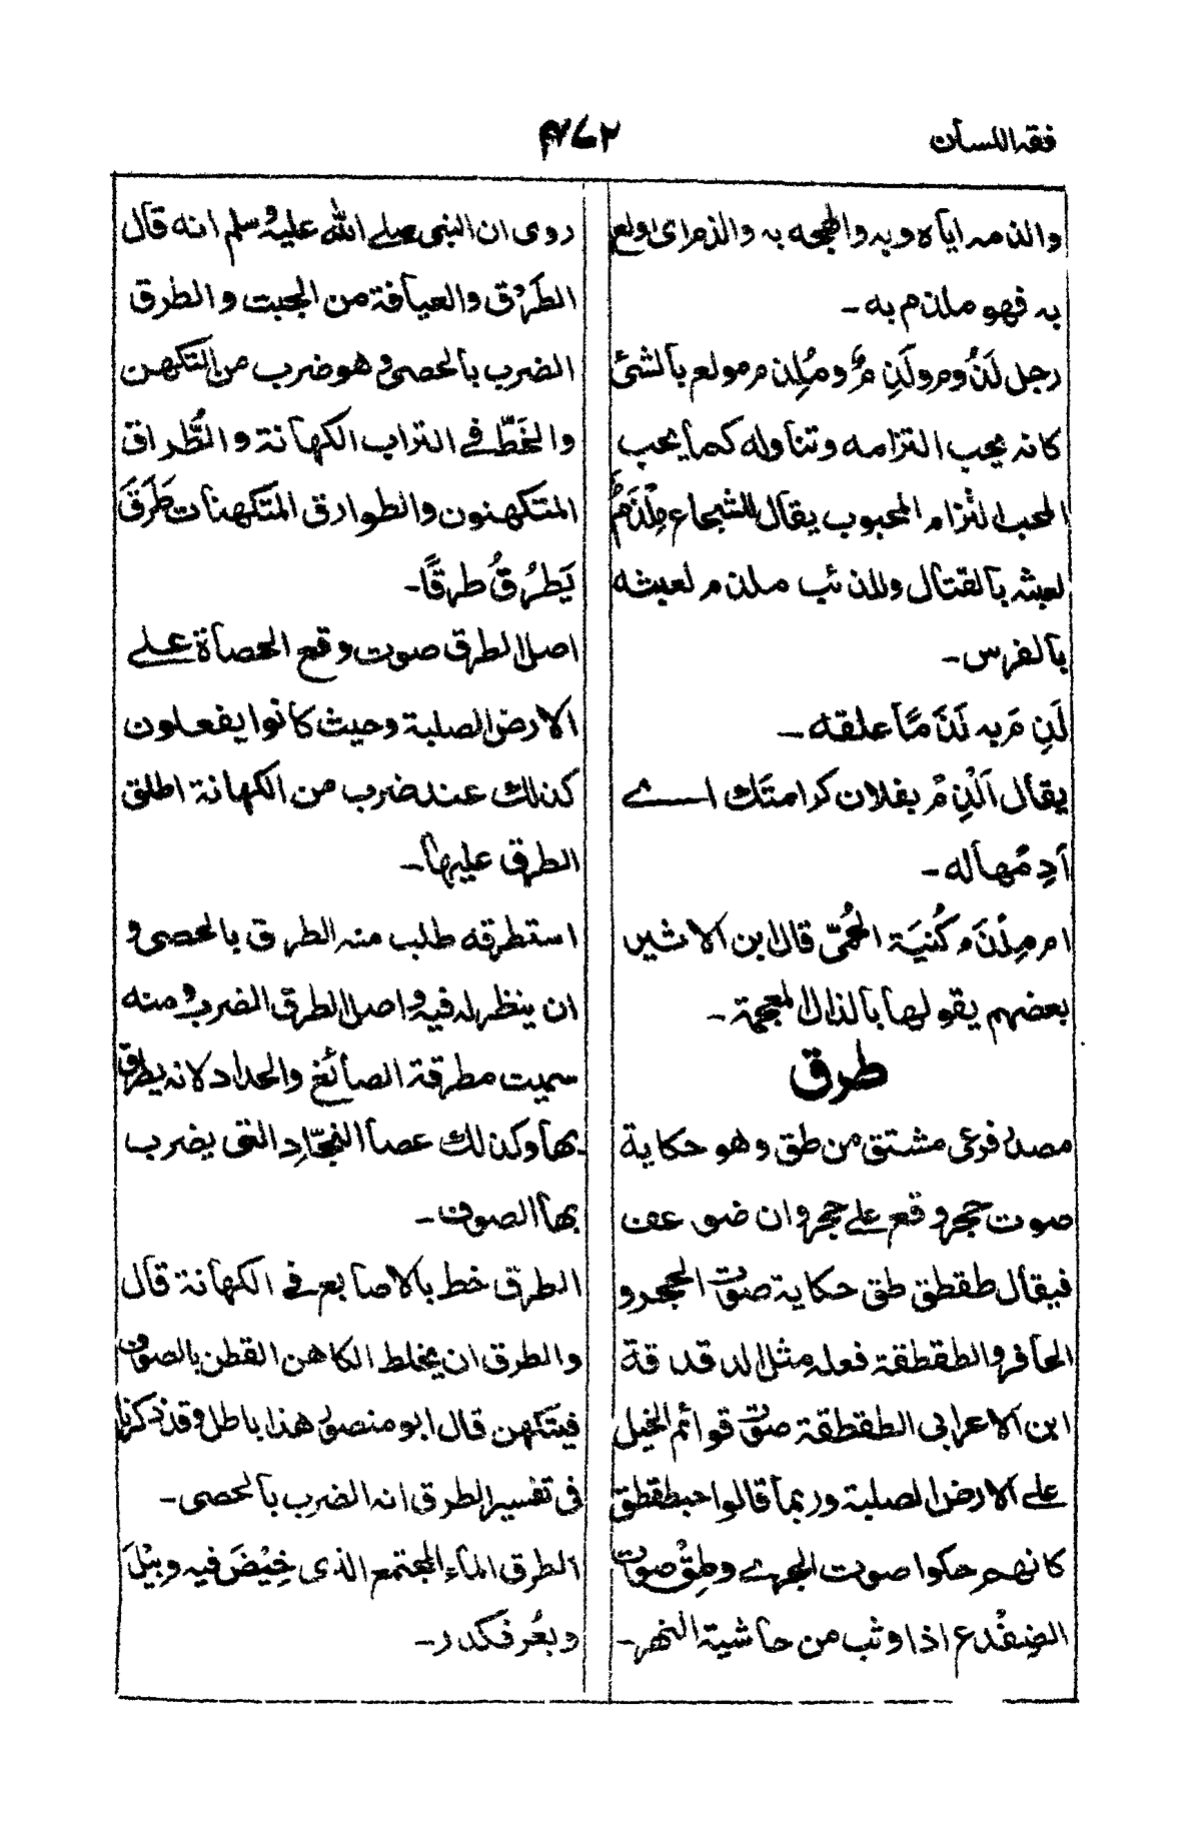 فقه اللسان
٤٧٢
والذمه اياه وبه والهجه به والذم اى اولع
به فهو ملذم به ـ
رجل لَذُوم ولَذِمٌ ومُلِذم مولع بالشئ
كانه يحب التزامه وتناوله كما يحب
المحب التزام المحبوب يقال للشجاع مِلْذَم
لعبثه بالقتال وللذئب ملذم لعبثه
بالفرس ـ
لَذِمَ به لَذَمًا علقه ـ
يقال اَلْذِمْ بفلان كرامتك اى
اَدِمْها له ـ
ام مِلْذَم كُنيَة الحُمىّ قال ابن الاثير
بعضهم يقولها بالذال المعجمة ـ
طرق
مصدر فرعى مشتق من طق وهو حكاية
صوت حجر وقع على حجر وان ضوعف
فيقال طقطق طق حكاية صوت الحجر و
الحافر والطقطقة فعله مثل الدقدقة
ابن الاعرابى الطقطقة صوت قوائم الخيل
على الارض الصلبة وربما قالوا حبطقطق
كانهم حكوا صوت الجرى وطقْ صوت
الضِفْدع اذا وثب من حاشية النهر ـ
روى ان النبى صلى الله عليه وسلم انه قال
الطَرْق والعيافة من الجبت والطرق
الضرب بالحصى وهو ضرب من التكهن
والخَطّ فى التراب الكهانة والطُّراق
المتكهنون والطوارق المتكهنات طَرَقَ
يَطرُقُ طرقًا ـ
اصل الطرق صوت وقع الحصاة على
الارض الصلبة وحيث كانوا يفعلون
كذلك عند ضرب من الكهانة اطلق
الطرق عليها ـ
استطرقه طلب منه الطرق بالحصى و
ان ينظر له فيه واصل الطرق الضرب ومنه
سميت مطرقة الصائغ والحداد لانه يطرق
بها وكذلك عصا النجّاد التى يضرب
بها الصوف ـ
الطرق خط بالاصابع فى الكهانة قال
والطرق ان يخلط الكاهن القطن بالصوف
فيتكهن قال ابو منصور هذا باطل وقد ذكرنا
فى تفسير الطرق انه الضرب بالحصى ـ
الطرق الماء المجتمع الذى خِيْضَ فيه وبِيْلَ
وبعُر فكدر ـ